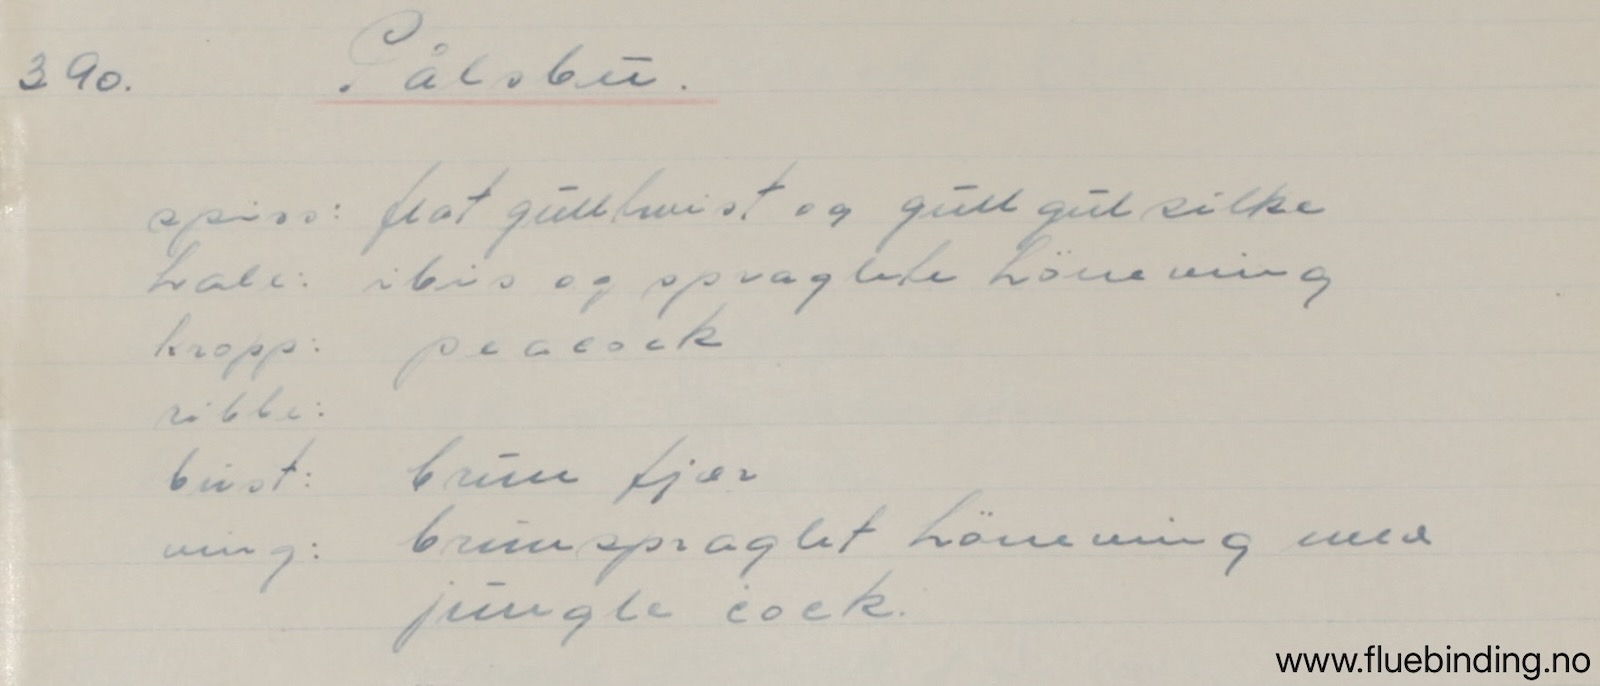 390. Pålsbu.
spiss: flat gulltwist og gull gul silke
hale: ibis og spraglete höneving
kropp: peacock
ribbe:
bust: brun fjær
ving: brunspraglet höneving med
jungle cock.
www.fluebinding.no